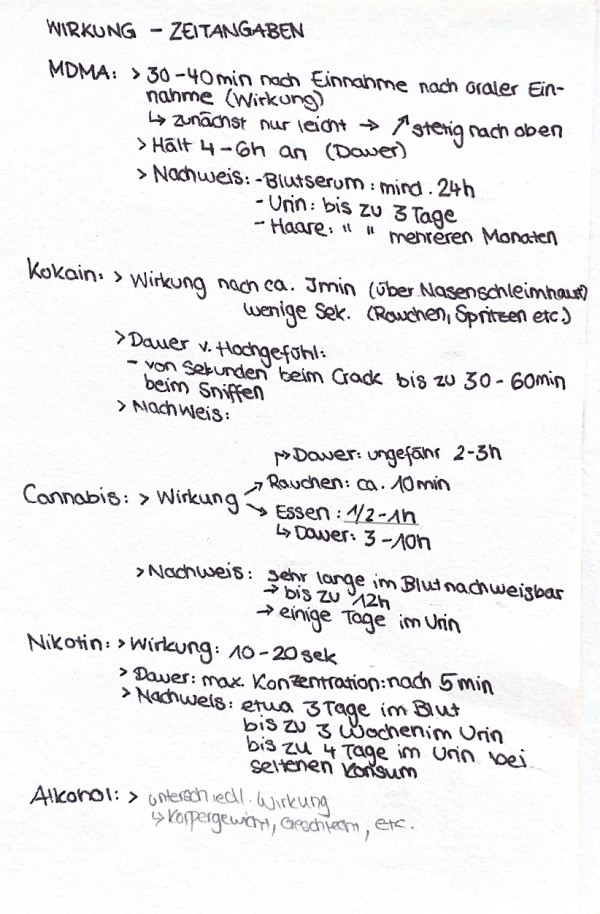 WIRKUNG - ZEITANGABEN
MDMA: > 30-40min nach Einnahme nach oraler Ein-
nahme (Wirkung)
↳ zunächst nur leicht → ↗ stetig nach oben
> Hält 4-6h an (Dauer)
> Nachweis: - Blutserum: mind. 24h
- Urin: bis zu 3 Tage
- Haare: " " mehreren Monaten
Kokain: > Wirkung nach ca. 3min (über Nasenschleimhaut)
wenige Sek. (Rauchen, Spritzen etc.)
> Dauer v. Hochgefühl:
- von Sekunden beim Crack bis zu 30-60min
beim Sniffen
> Nachweis:
↱ Dauer: ungefähr 2-3h
Cannabis: > Wirkung ↗ Rauchen: ca. 10min
↘ Essen: 1/2-1h
↳ Dauer: 3-10h
> Nachweis: sehr lange im Blut nachweisbar
→ bis zu 12h
→ einige Tage im Urin
Nikotin: > Wirkung: 10-20sek
> Dauer: max. Konzentration: nach 5min
> Nachweis: etwa 3 Tage im Blut
bis zu 3 Wochen im Urin
bis zu 4 Tage im Urin bei
seltenen Konsum
Alkohol: > unterschiedl. Wirkung
↳ Körpergewicht, Geschlecht, etc.